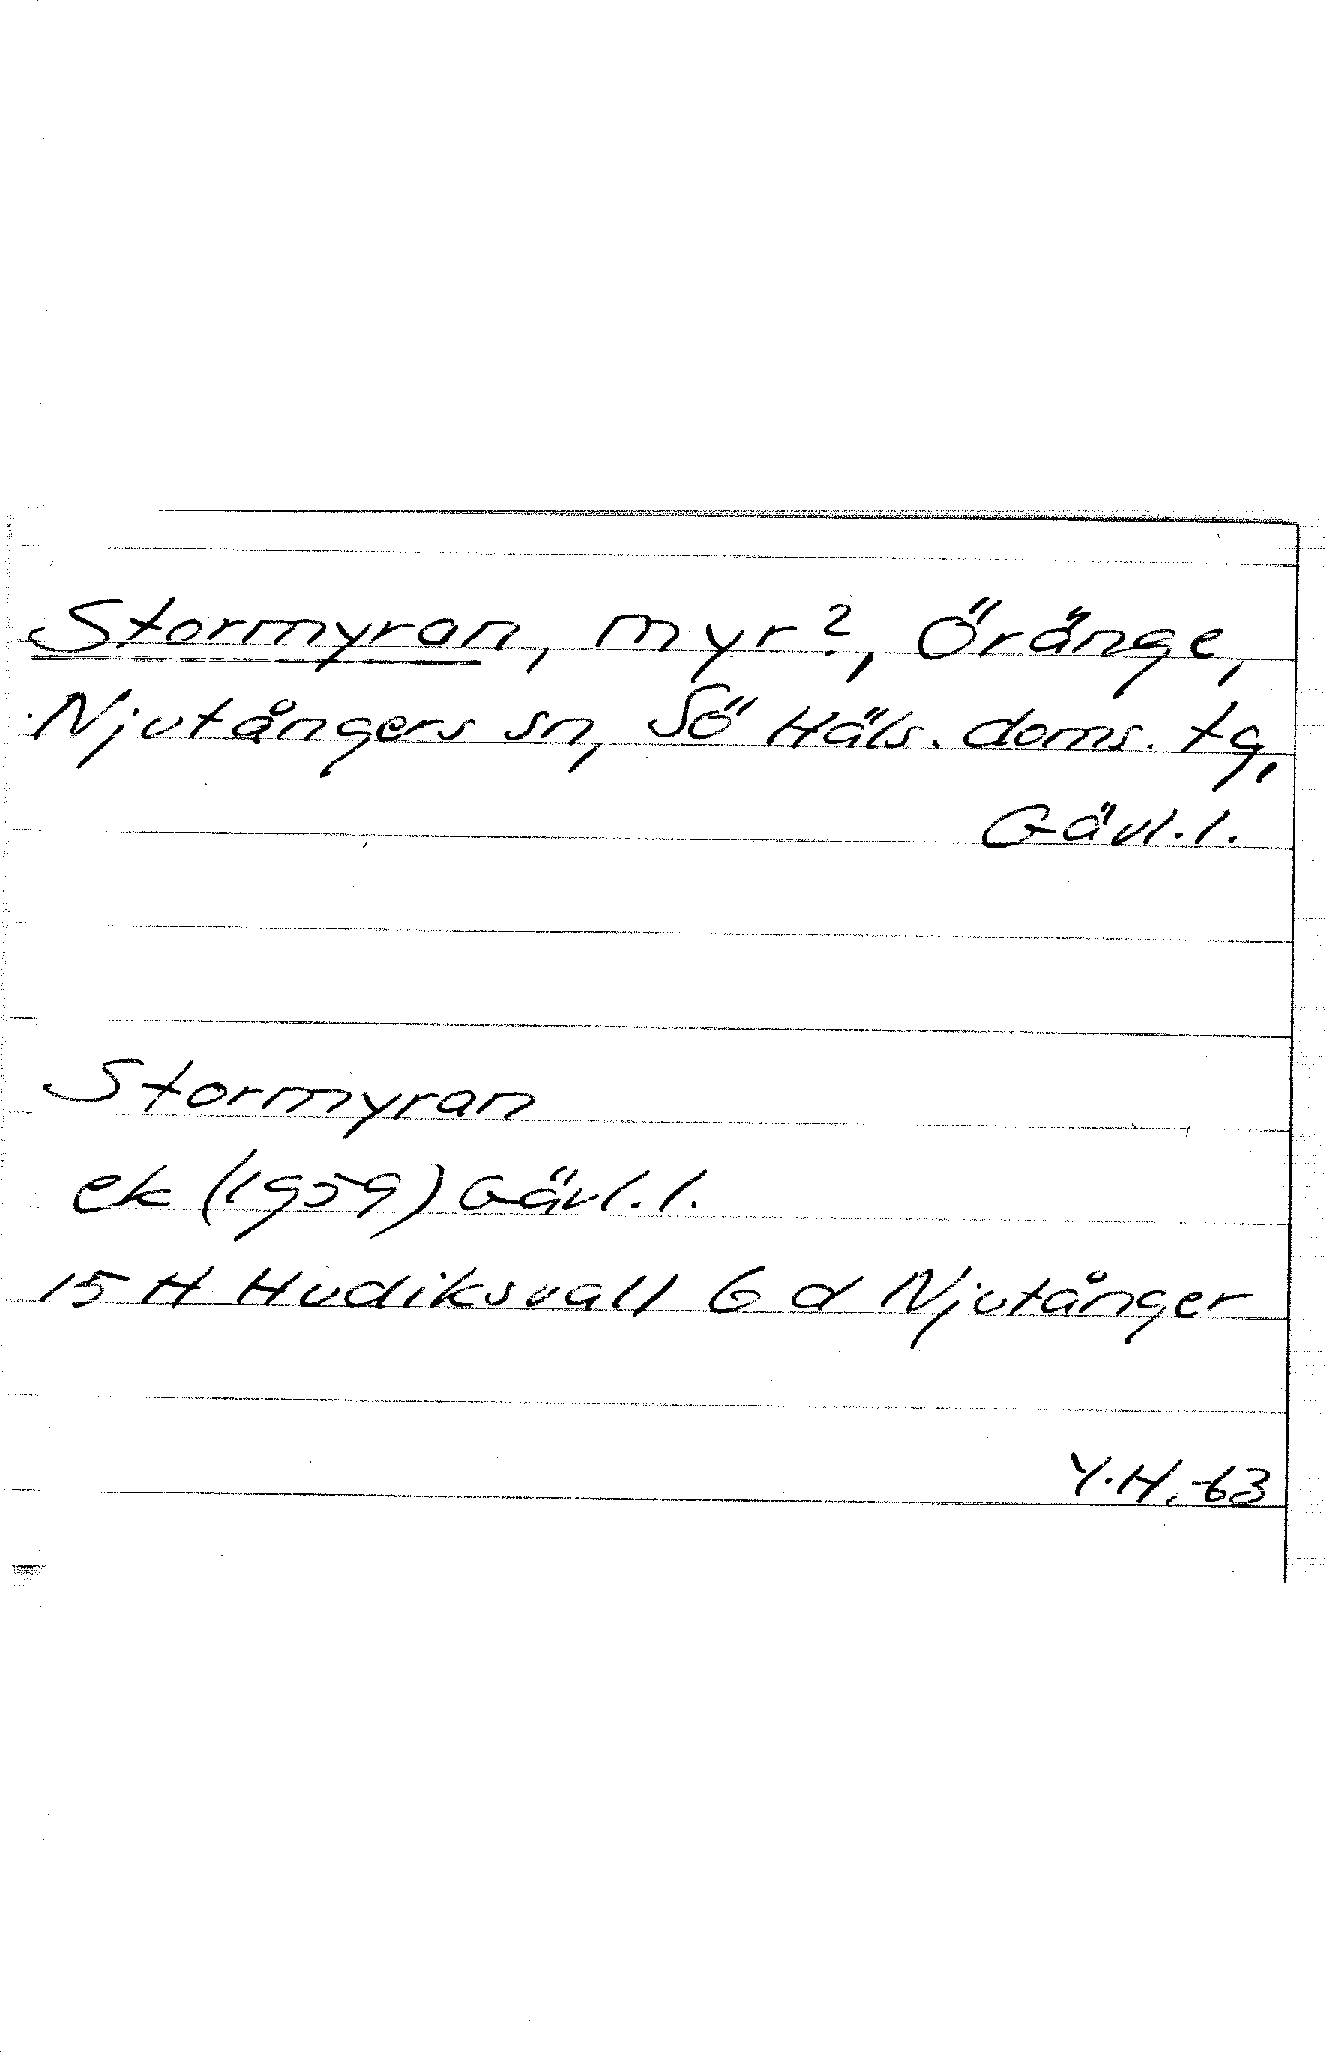 Stormyran, myr?, Öränge,
Njutångers sn, Sö Häls. doms. tg,
Gävl. l.
Stormyran
ek (1959) Gävl. l.
15 H Hudiksvall 6 d Njutånger
Y.H. -63